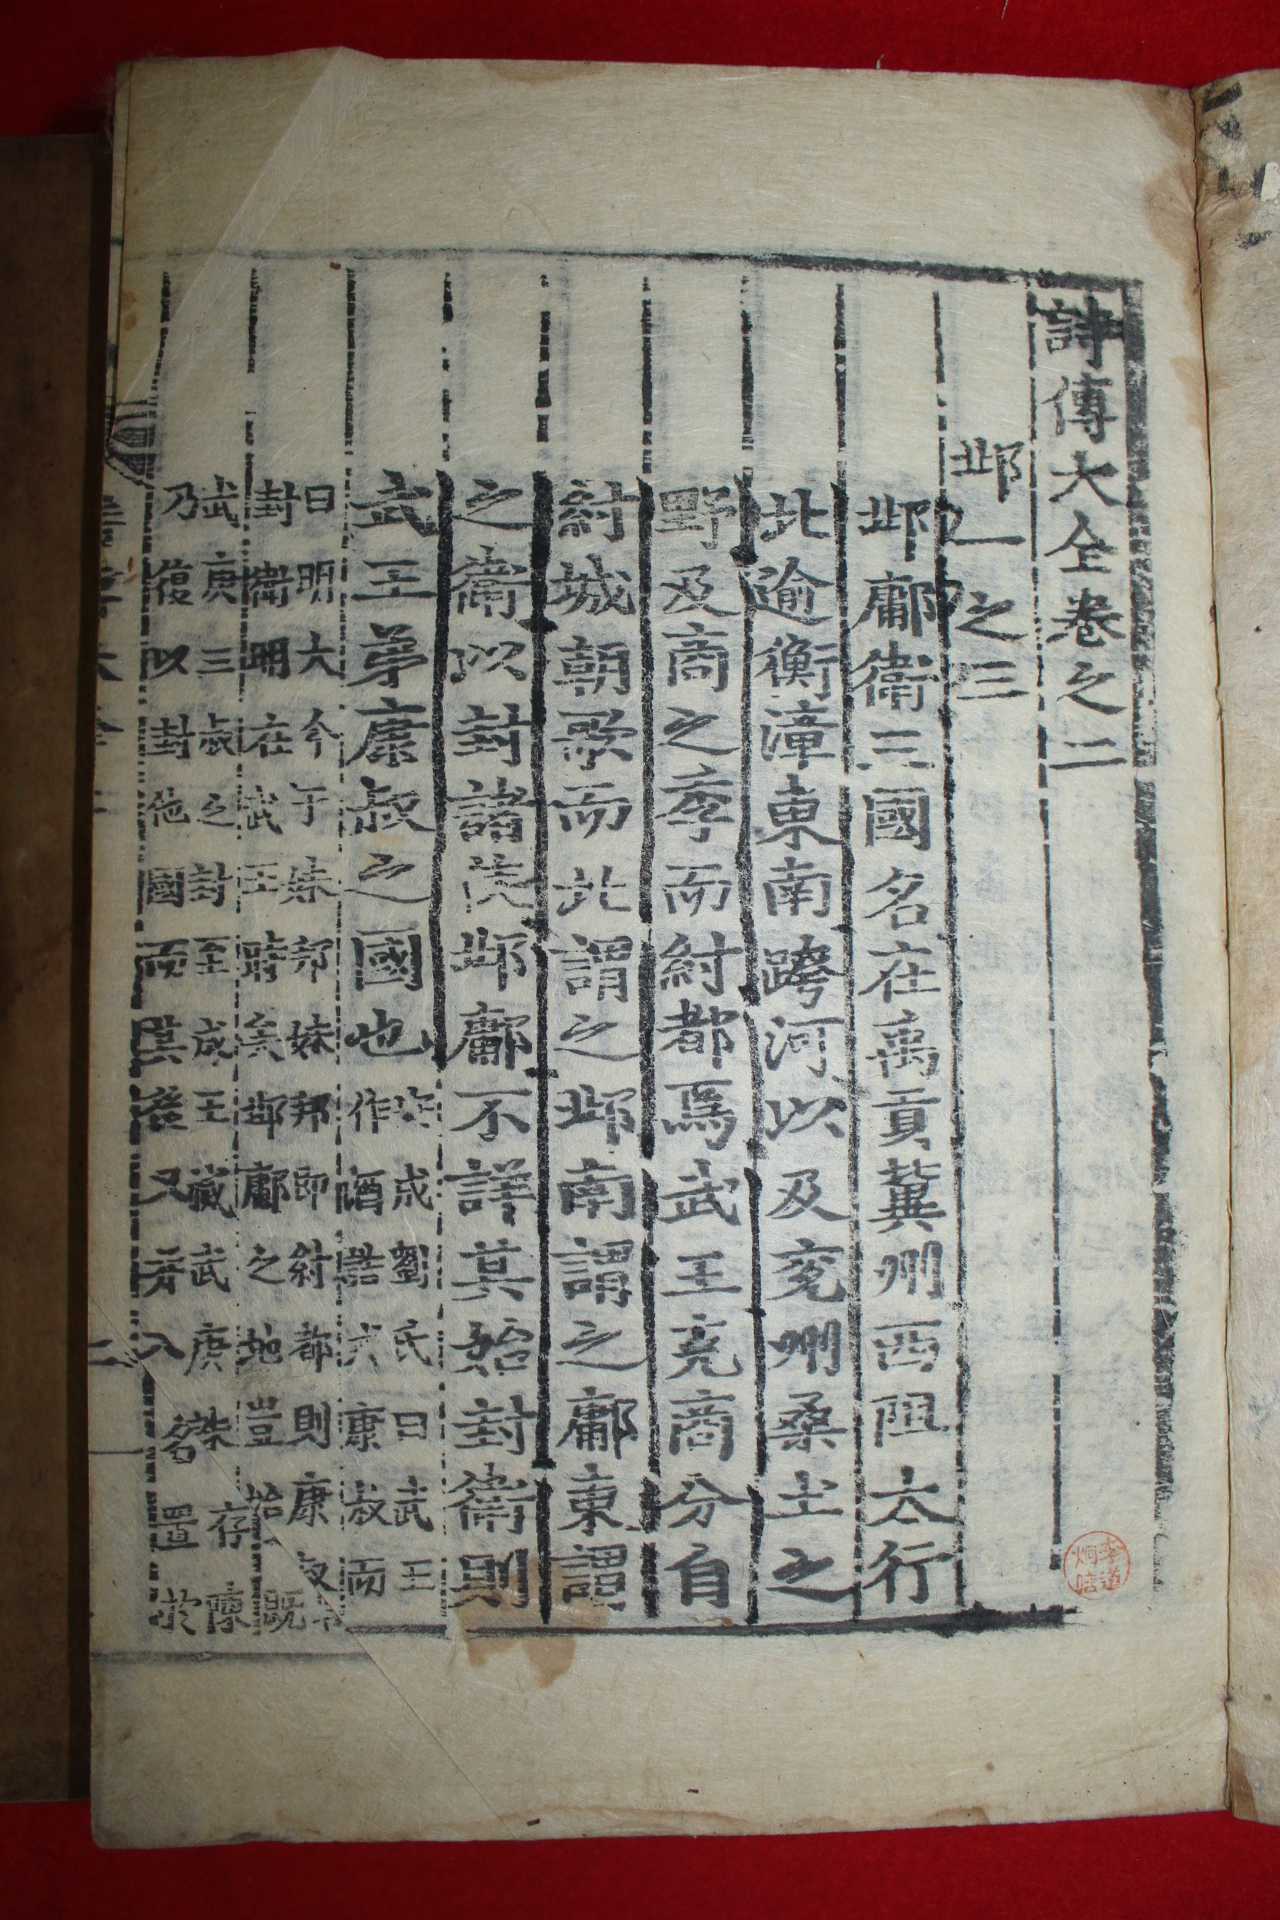 詩傳大全卷之二
邶一之三
邶鄘衛三國名在禹貢冀州西阻太行
北逾衡漳東南跨河以及兗州桑土之
野及商之季而紂都焉武王克商分自
紂城朝歌而北謂之邶南謂之鄘東謂
之衛以封諸侯邶鄘不詳其始封衛則
武王弟康叔之國也
成劉氏曰武王
作酒誥康叔而
曰明大今于妹邦妹邦即紂都則康叔
封衛明在武王時矣邶鄘之地豈始既
武庚三叔之封至成王滅武庚存陳
乃復以封他國而其後又入名置於
李道炯